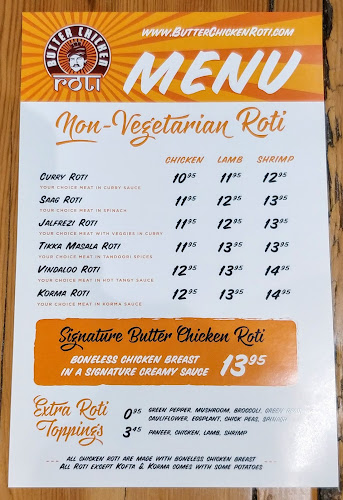 BUTTER CHICKEN
roti
www.ButterChickenRoti.com
MENU
Non-Vegetarian Roti
CHICKEN LAMB SHRIMP
Curry Roti 10.95 11.95 12.95
YOUR CHOICE MEAT IN CURRY SAUCE
Saag Roti 11.95 12.95 13.95
YOUR CHOICE MEAT IN SPINACH
Jalfrezi Roti 11.95 12.95 13.95
YOUR CHOICE MEAT WITH VEGGIES IN CURRY
Tikka Masala Roti 11.95 13.95 13.95
YOUR CHOICE MEAT IN TANDOORI SPICES
Vindaloo Roti 12.95 13.95 14.95
YOUR CHOICE MEAT IN HOT TANGY SAUCE
Korma Roti 12.95 13.95 14.95
YOUR CHOICE MEAT IN KORMA SAUCE
Signature Butter Chicken Roti
BONELESS CHICKEN BREAST
IN A SIGNATURE CREAMY SAUCE 13.95
Extra Roti
Toppings
0.95 GREEN PEPPER, MUSHROOM, BROCCOLI, GREEN
CAULIFLOWER, EGGPLANT, CHICK PEAS, SPINACH
3.45 PANEER, CHICKEN, LAMB, SHRIMP
ALL CHICKEN ROTI ARE MADE WITH BONELESS CHICKEN BREAST
All Roti except Kofta & Korma comes with some potatoes